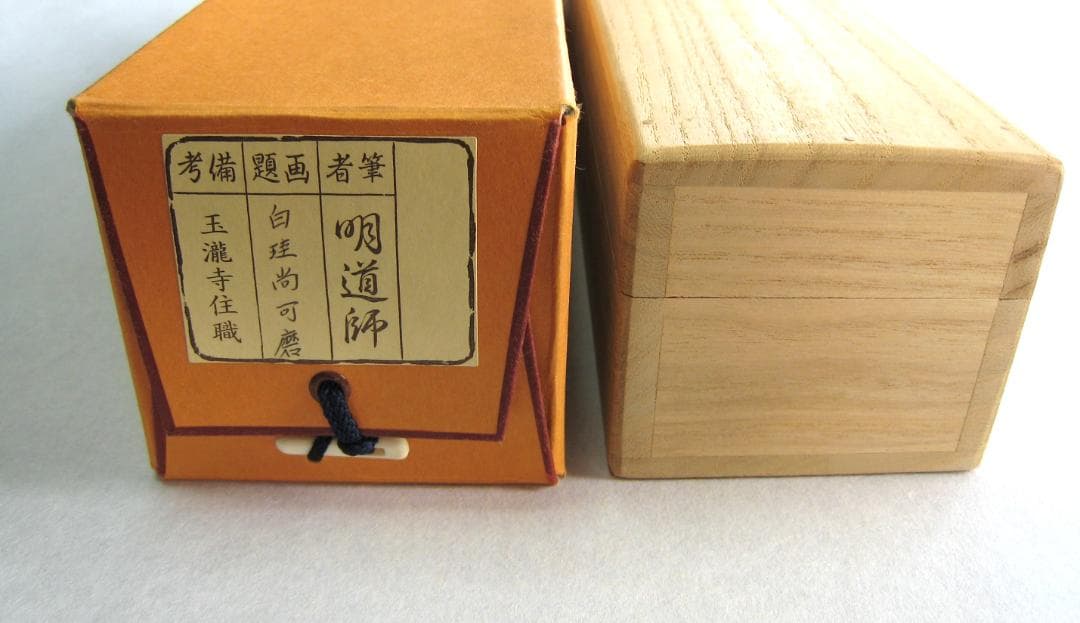 筆者
明道師
画題
白珪尚可磨
備考
玉瀧寺住職